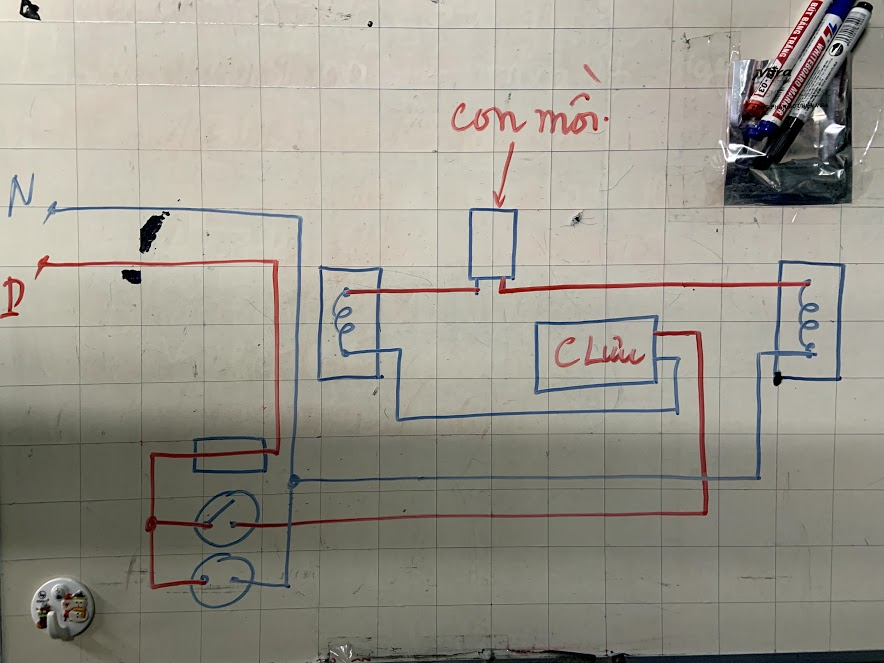 con mồi.
N
D
C Lưu
BÚT BẢNG TRẮNG
WHITEBOARD MARKER